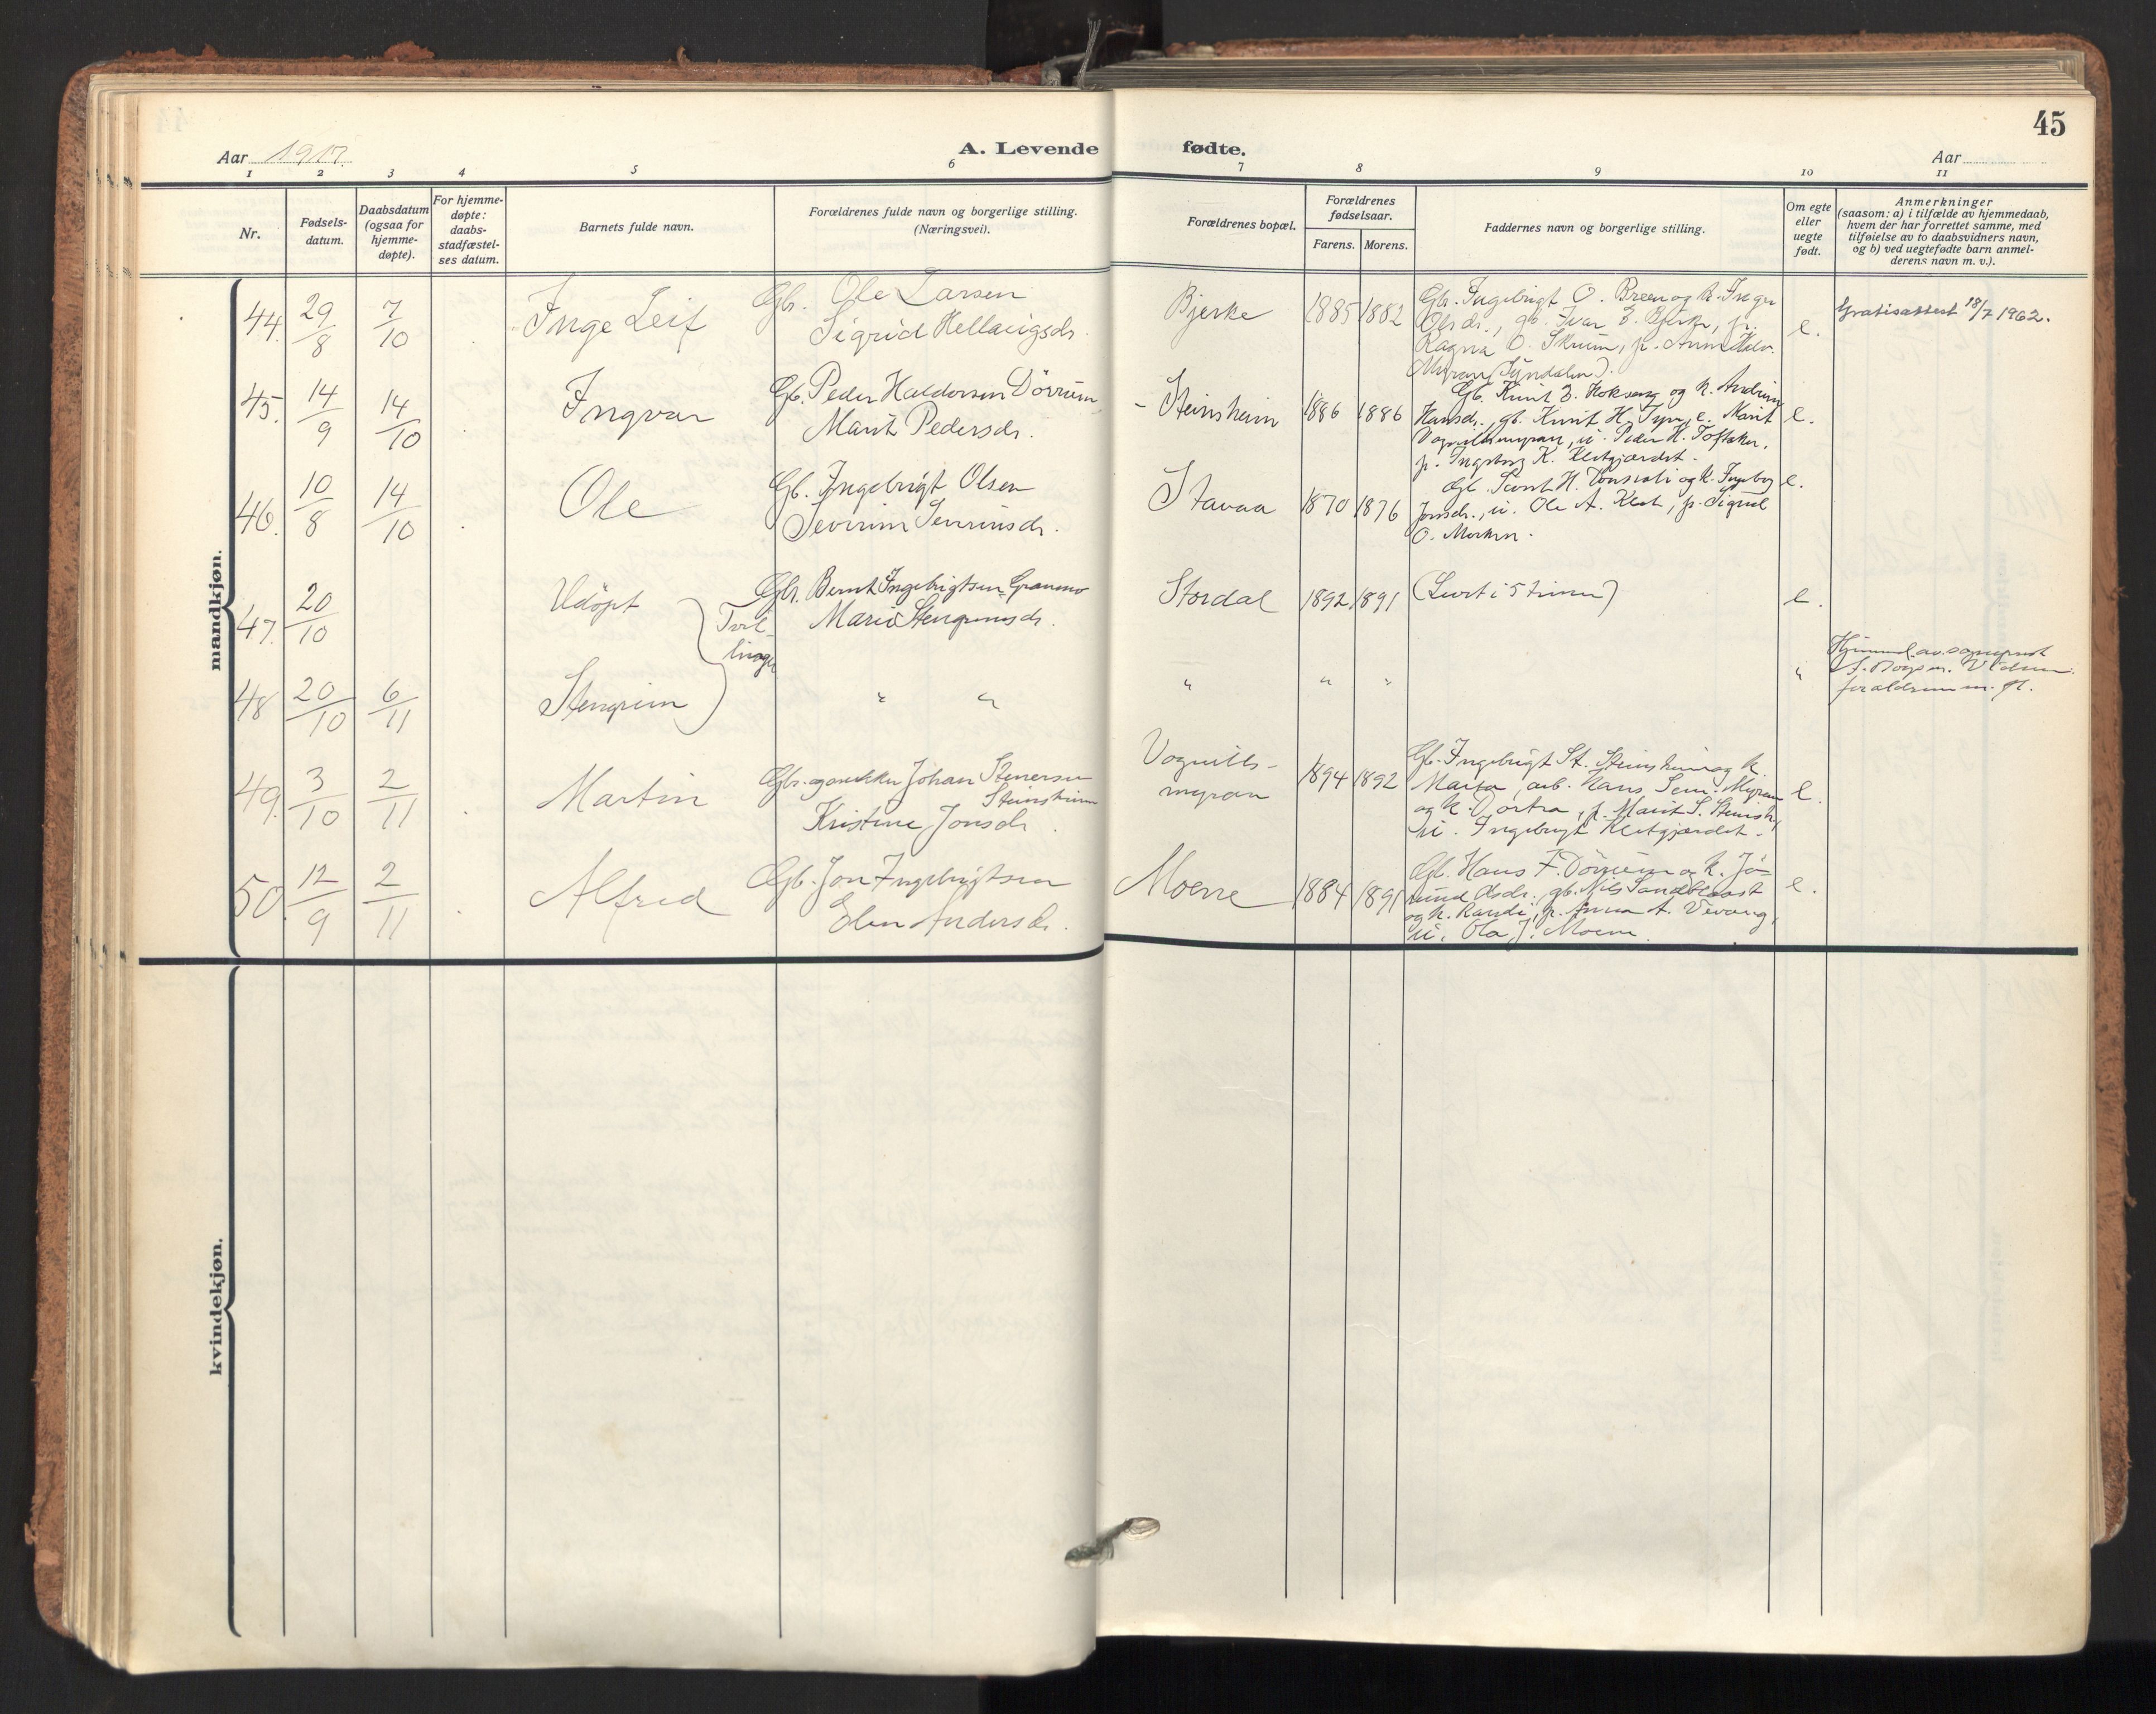 45
Aar 1917.
A. Levende
fødte.
Aar
1 2 3 4 5 6 7 8 9 10 11
Nr.
Fødsels-
datum.
Daabsdatum
(ogsaa for
hjemme-
døpte).
For hjemme-
døpte:
daabs-
stadfæstel-
ses datum.
Barnets fulde navn.
Forældrenes fulde navn og borgerlige stilling.
(Næringsvei).
Forældrenes bopæl.
Forældrenes
fødselsaar.
Farens. Morens.
Faddernes navn og borgerlige stilling.
Om egte
eller
uegte
født.
Anmerkninger
(saasom: a) i tilfælde av hjemmedaab,
hvem der har forrettet samme, med
tilføielse av to daabsvidners navn,
og b) ved uegtefødte barn anmel-
derens navn m. v.).
mandkjøn.
44. 29/8 7/10 Inge Leif
Gb. Ole Larsen
Sigrid Hellavigsdr.
Bjerke 1885 1882
Gb. Ingebrigt O. Breen og k. Inger
Olsdr., gb. Ivar E. Bjerke, p.
Ragna O. Skrum, p. Anne
Myran
e.
Gratisattest 18/7 1962.
45. 14/9 14/10 Ingvar
Gb. Peder Haldorsen Dörrum
Marit Pedersdr.
- Steinsheim 1886 1886
Gb. Knut E. Hokseng og k.
Hansdr., gb. Knut H. e. Marit
Vognillsmyran, u. Peder H. Toftaker,
p. Ingeborg K. Kletgjærdet.
e.
46. 10/8 14/10 Ole
Gb. Ingebrigt Olsen
Severine Severinsdr.
Stavaa 1870 1876
Gb. H. og k. Ingeborg
Jonsdr., u. Ole A. Klet, p. Sigrid
O. Morken.
e.
47. 20/10 Udöpt
Tvil-
linger
Gb. Bernt Ingebrigtsen Granmo
Marie Stengrimsdr.
Stordal 1892 1891 (Levet i 5 timer)
e.
48 20/10 6/11 Stengrim
" "
" " "
"
Hjemmed. av sogneprest
foreldrene m. fl.
49. 3/10 2/11 Martin
Gbr. og snekker Johan Stenersen
Steinsheim
Kristine Jonsdr.
Vognills-
myran 1894 1892
Gb. Ingebrigt St. Steinsheim og k.
Marta, arb. Hans Sem. Myran
og k. Dortea, p. Marit S. Steinsh.,
u. Ingebrigt Kletgjærdet.
e.
50. 12/9 2/11 Alfred
Gb. Jon Ingebrigtsen
Elen Andersdr.
Moene 1884 1891
Gb. Hans F. Dörrum og k. Jö-
rund Olsdr., gb. Nils Sandblaast
og k. Randi, p. Anna A. Vevang,
u. Ola J. Moene.
e.
kvindekjøn.